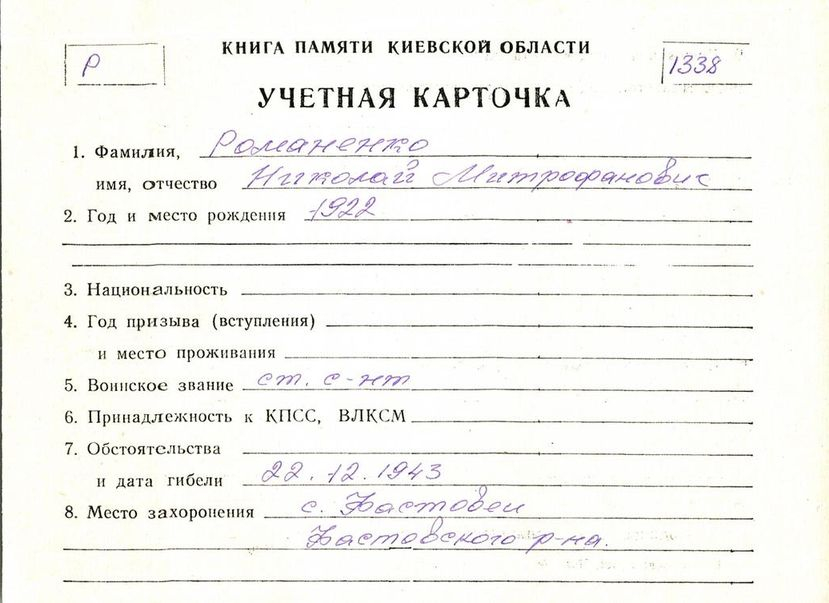 КНИГА ПАМЯТИ КИЕВСКОЙ ОБЛАСТИ
Р
1338
УЧЕТНАЯ КАРТОЧКА
1. Фамилия, Романенко
имя, отчество Николай Митрофанович
2. Год и место рождения 1922
3. Национальность
4. Год призыва (вступления)
и место проживания
5. Воинское звание ст. с-нт
6. Принадлежность к КПСС, ВЛКСМ
7. Обстоятельства
и дата гибели 22.12.1943
8. Место захоронения с. Фастовец
Фастовского р-на.